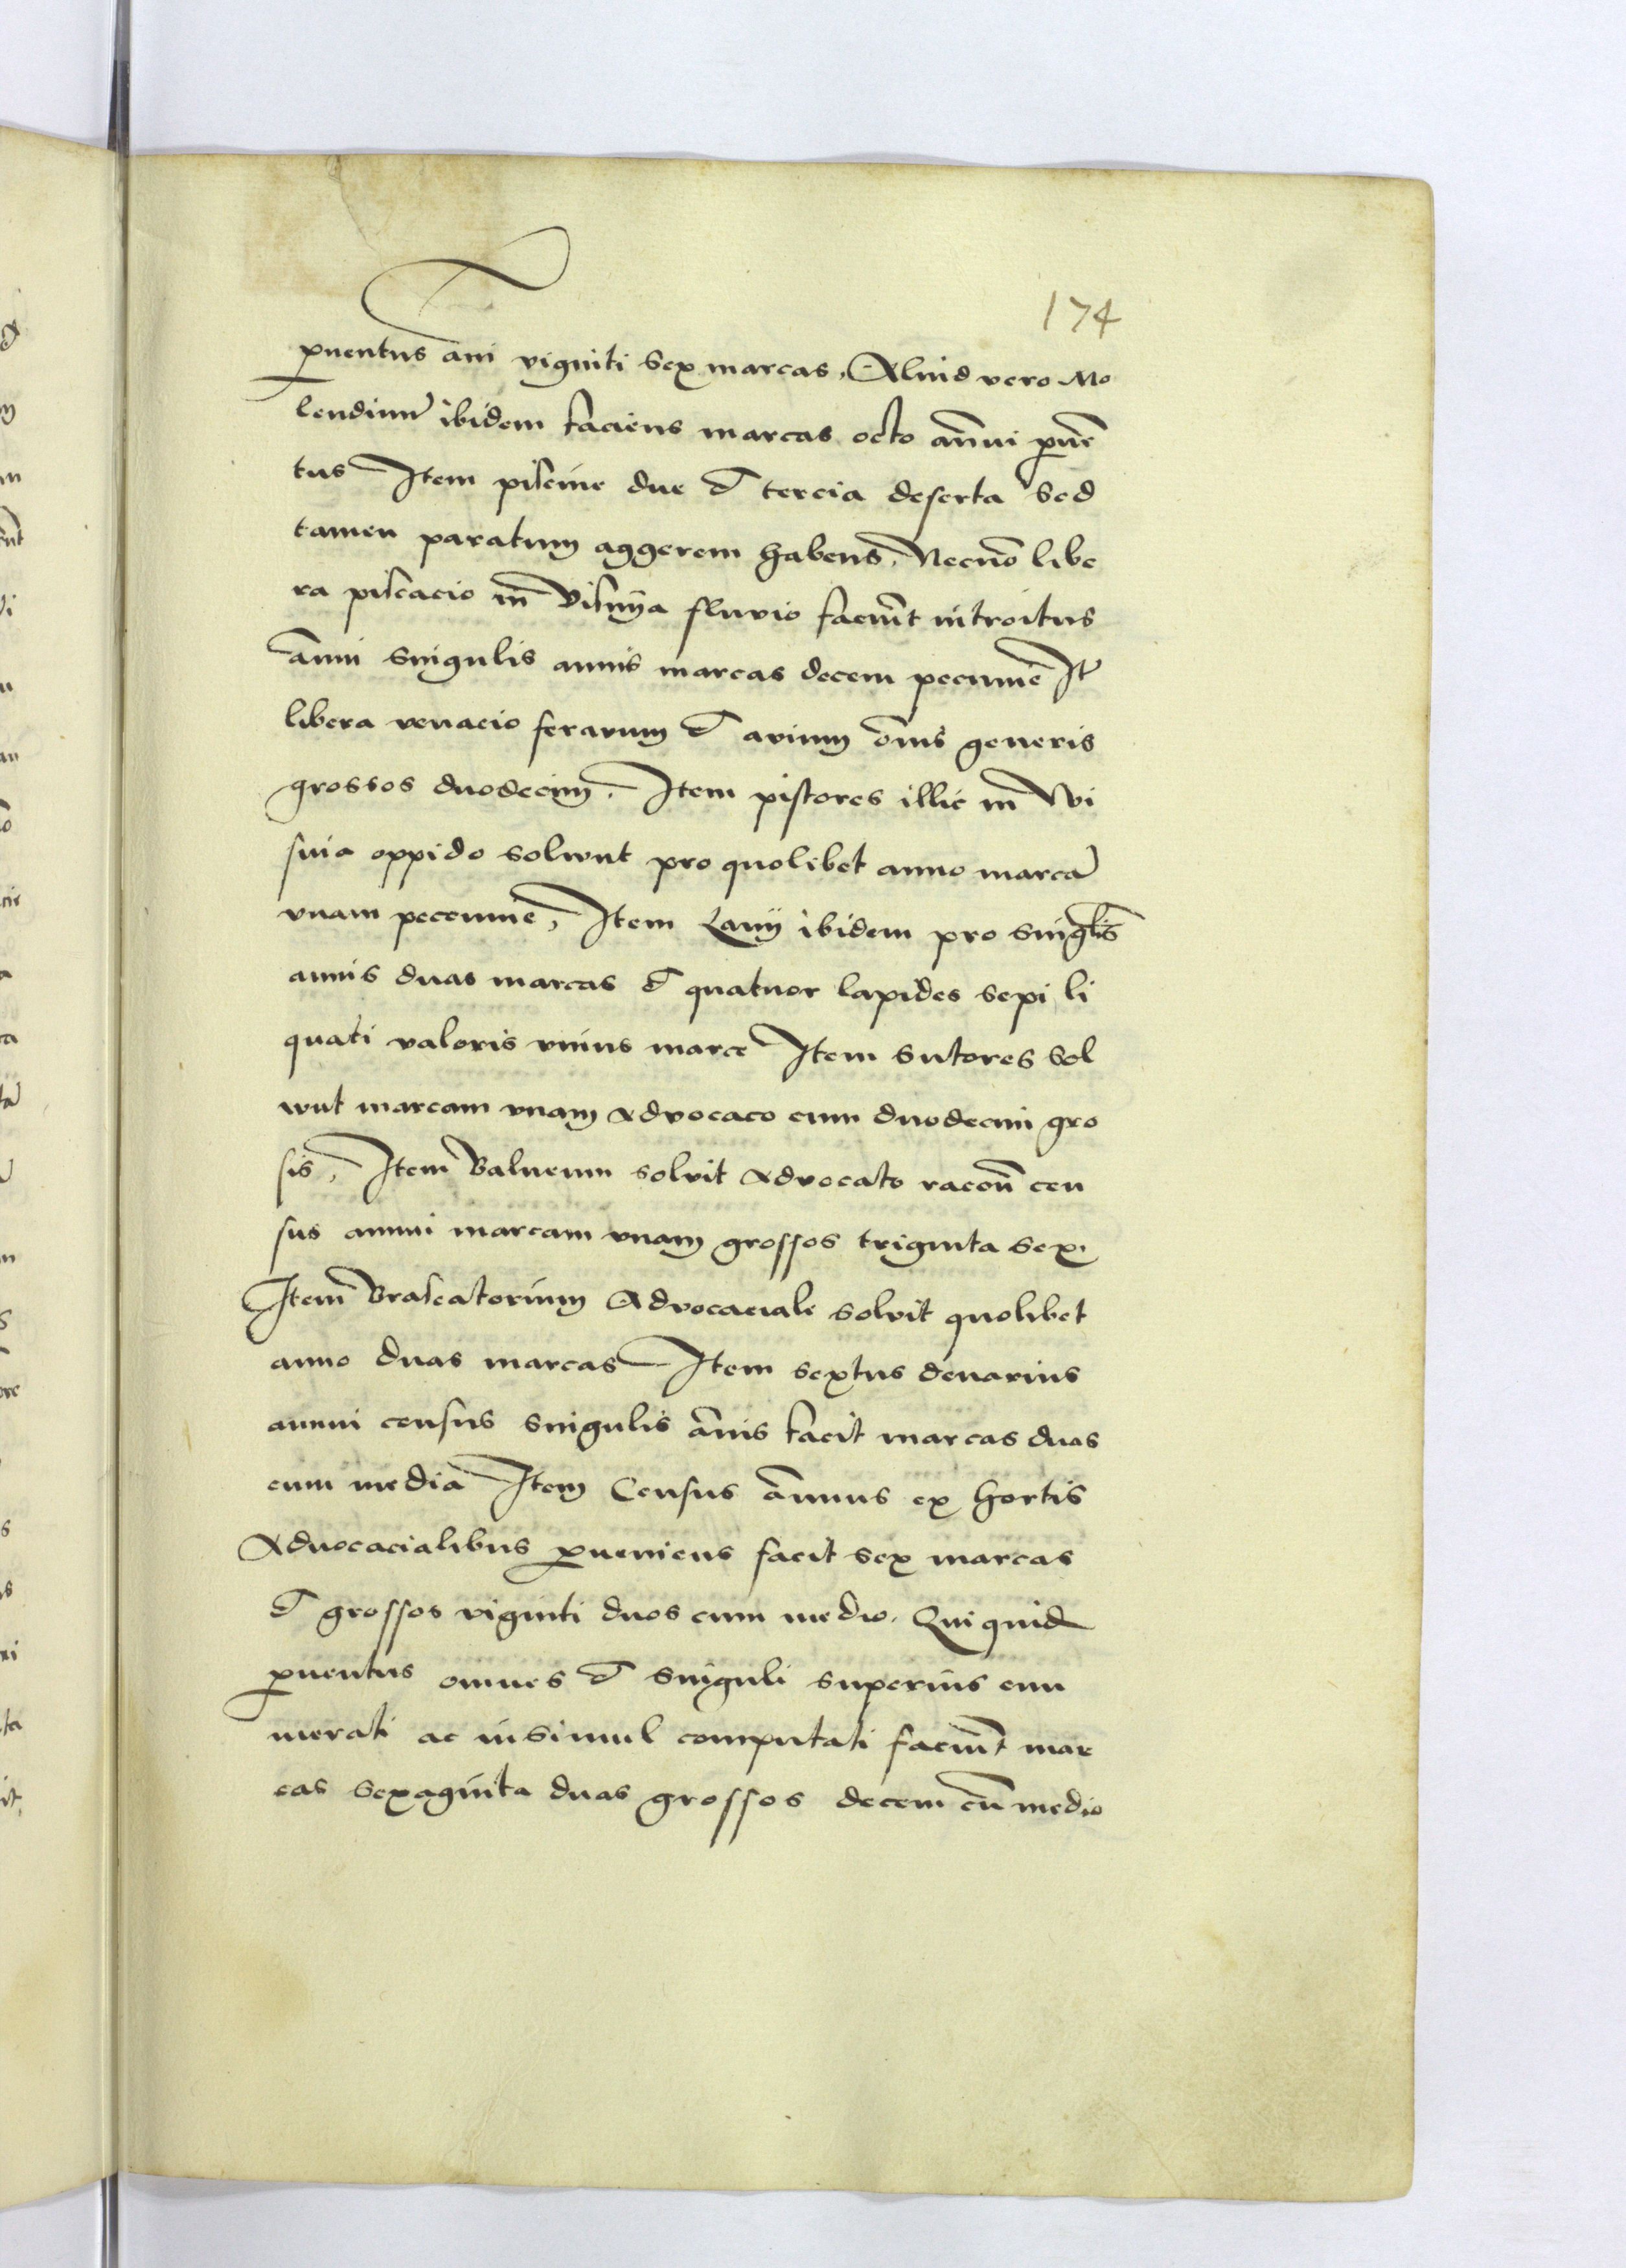 174
ꝓventus añi viginti sex marcas, Aliud vero Mo
lendinū ibidem faciens marcas octo annui ꝓvē
tus Item piscine due et tercia deserta sed
tamen paratum aggerem habens, Necnō libe
ra piscacio in Visnya fluvio faciūt introitus
anni singulis annis marcas decem pecunie It
libera venacio ferarum et avium om̄is generis
grossos duodecim. Item pistores illic in Wi
snia oppido solvunt pro quolibet anno marcā
unam peccunie, Item Lanij ibidem pro singlis
annis duas marcas et quatuor lapides sepi li
quati valoris unius marce Item sutores sol
wnt marcam unam Advocaco cum duodecim gro
sis, Item Balneum solvit Advocato racōn cen
sus annui marcam unam grossos triginta sex.
Item Braseatorium Advocaciale solvit quolibet
anno duas marcas Item sextus denarius
annui census singulis ānis facit marcas duas
cum media Item Census ānnuus ex hortis
Advocacialibus ꝓveniens facit sex marcas
et grossos viginti duos cum medio. Qui quid
ꝓventus omnes et singuli superius enu
merati ac insimul computati faciūt mar
cas sexaginta duas grossos decem cū medio